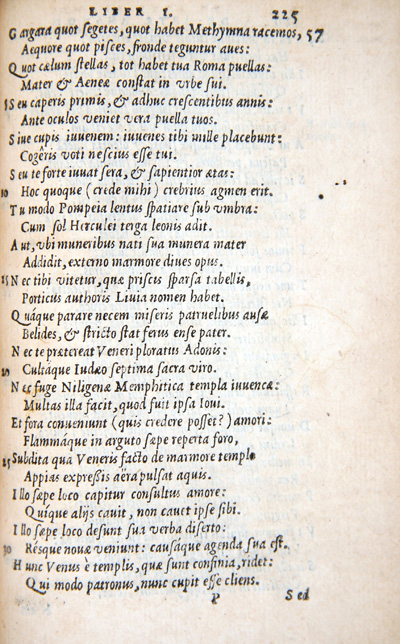 LIBER I. 225
Gargara quot segetes, quot habet Methymna racemos, 57
Aequore quot pisces, fronde teguntur aues:
Quot cælum stellas, tot habet tua Roma puellas:
Mater & Aeneæ constat in vrbe sui.
5 Seu caperis primis, & adhuc crescentibus annis:
Ante oculos veniet vera puella tuos.
Siue cupis iuuenem: iuuenes tibi mille placebunt:
Cogêris voti nescius esse tui.
Seu te forte iuuat sera, & sapientior ætas:
10 Hoc quoque (crede mihi) crebrius agmen erit.
Tu modo Pompeia lentus spatiare sub vmbra:
Cum sol Herculei terga leonis adit.
Aut, vbi muneribus nati sua munera mater
Addidit, externo marmore diues opus.
15 Nec tibi vitetur, quæ priscis sparsa tabellis,
Porticus authoris Liuia nomen habet.
Quáque parare necem miseris patruelibus ausæ
Belides, & stricto stat ferus ense pater.
Nec te prætereat Veneri ploratus Adonis:
20 Cultáque Iudæo septima sacra viro.
Nec fuge Niligenæ Memphitica templa iuuencæ:
Multas illa facit, quod fuit ipsa Ioui.
Et fora conueniunt (quis credere posset?) amori:
Flammáque in arguto sæpe reperta foro,
25 Subdita quà Veneris facto de marmore templo
Appias expressis aëra pulsat aquis.
Illo sæpe loco capitur consultus amore:
Quíque alijs cauit, non cauet ipse sibi.
Illo sæpe loco desunt sua verba diserto:
30 Résque nouæ veniunt: causáque agenda sua est.
Hunc Venus è templis, quæ sunt confinia, ridet:
Qui modo patronus, nunc cupit esse cliens.
P Sed